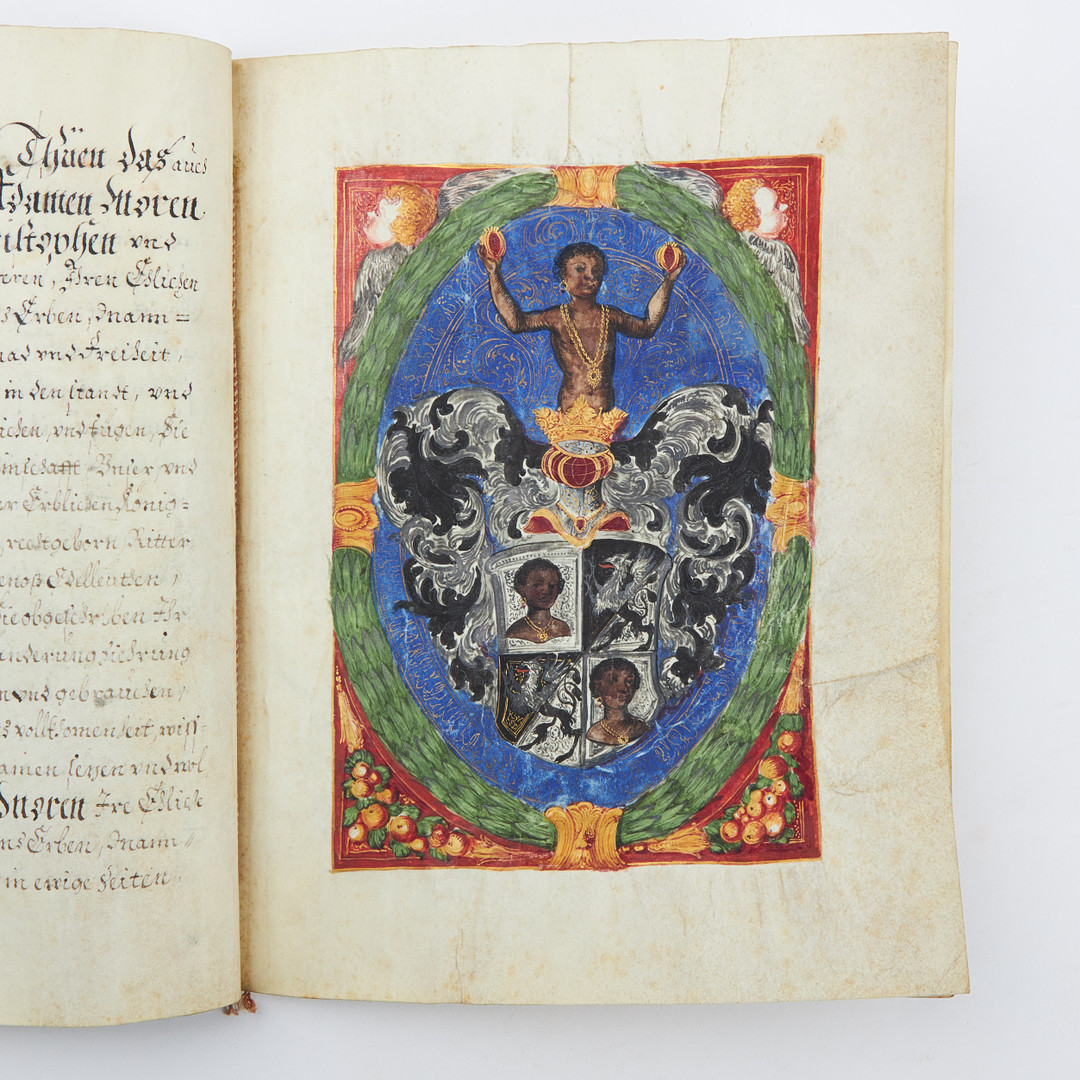 Thüen das auch
Adamen Moren
istophen vnd
eren, Ihren Ehlichen
s Erben, Mann=
nad vnd Freiheit,
in den standt, vnd
achen, vnd fügen, Sie
vnd
er Erblichen König=
rechtgeborn Ritter
enoß Edelleuthen,
die obgeschriben Ihr
anderung
n vnd gebrauchen,
s vollkhomenheit, wiss=
amen sezen vnd wol
Moren Ire Ehliche
ns Erben, Mann=
in ewige Zeiten